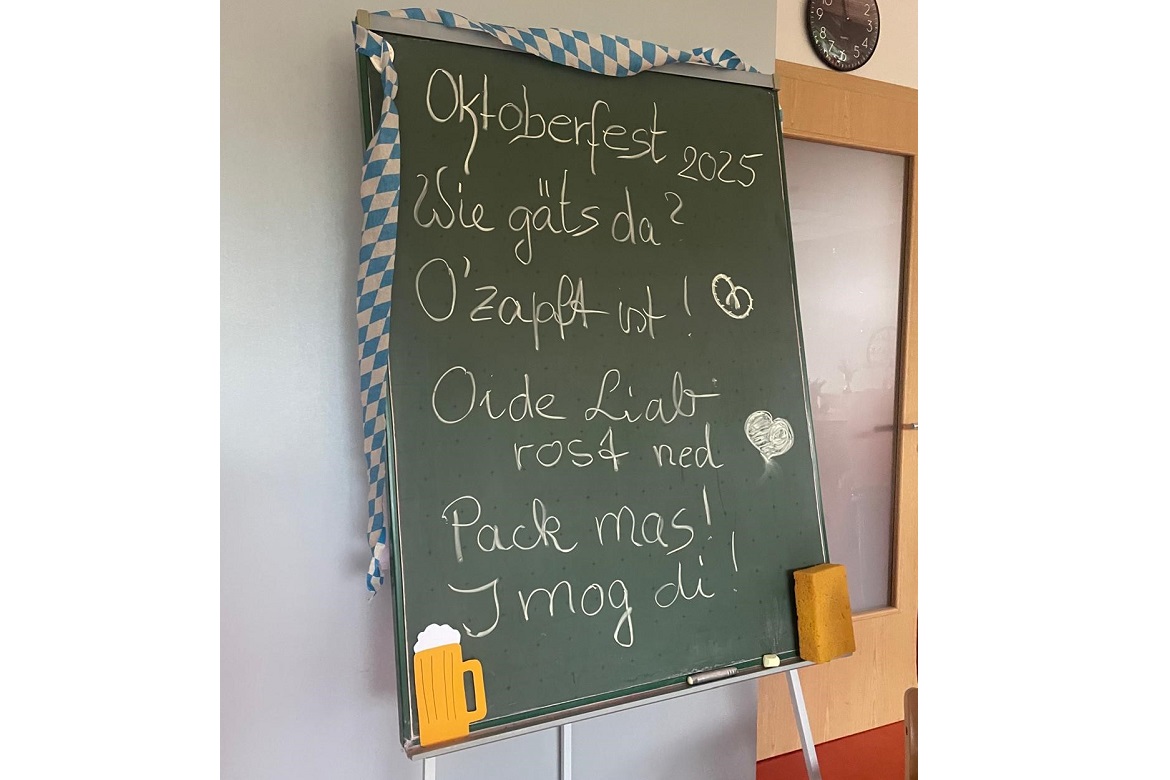 Oktoberfest 2025
Wie gäts da?
O'zapft ist!
Oide Liab
rost ned
Pack mas!
I mog di!
10
2
9
3
8
4
7
5
6